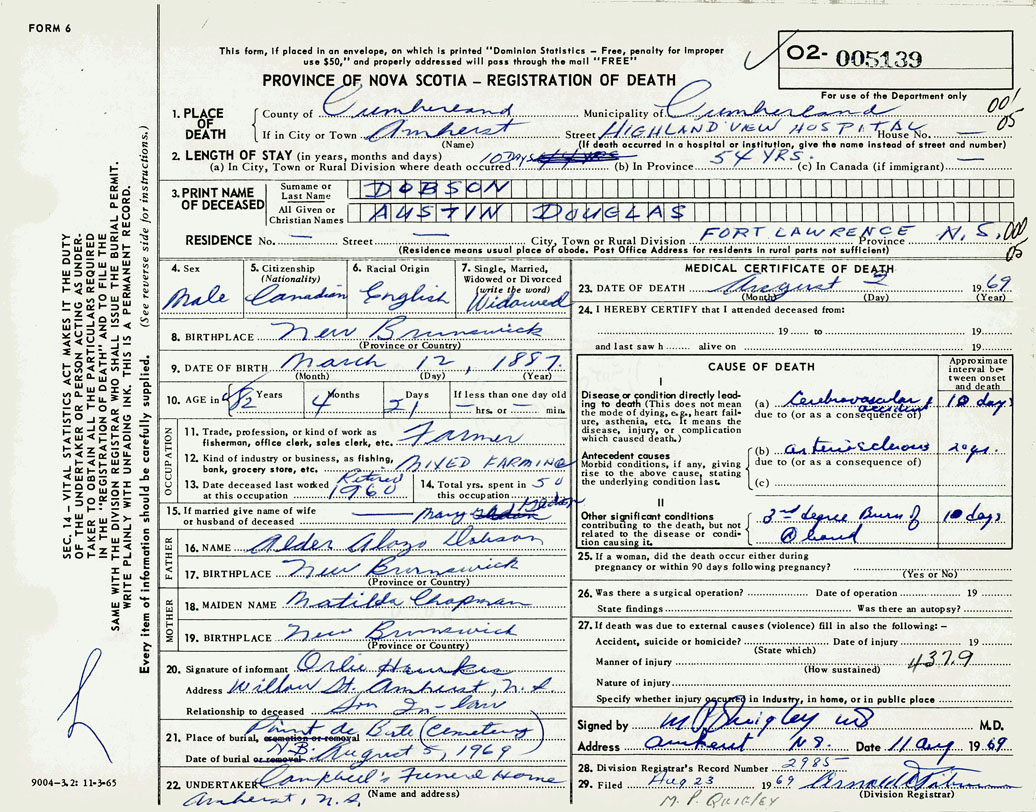 FORM 6
This form, if placed in an envelope, on which is printed "Dominion Statistics – Free, penalty for improper
use $50," and properly addressed will pass through the mail "FREE"
PROVINCE OF NOVA SCOTIA – REGISTRATION OF DEATH
O2- 005139
For use of the Department only
001
05
1. PLACE OF DEATH
County of Cumberland Municipality of Cumberland
If in City or Town Amherst Street HIGHLAND VIEW HOSPITAL House No. —
(Name) (If death occurred in a hospital or institution, give the name instead of street and number)
2. LENGTH OF STAY (in years, months and days)
(a) In City, Town or Rural Division where death occurred 10 Days (b) In Province 54 YRS. (c) In Canada (if immigrant) —
3. PRINT NAME OF DECEASED
Surname or Last Name DOBSON
All Given or Christian Names AUSTIN DOUGLAS
RESIDENCE No. — Street — City, Town or Rural Division FORT LAWRENCE Province N.S.
000
05
(Residence means usual place of abode. Post Office Address for residents in rural parts not sufficient)
4. Sex Male
5. Citizenship (Nationality) Canadian
6. Racial Origin English
7. Single, Married, Widowed or Divorced (write the word) Widowed
8. BIRTHPLACE New Brunswick
(Province or Country)
9. DATE OF BIRTH March 12, 1887
(Month) (Day) (Year)
10. AGE in 82 Years 4 Months 21 Days If less than one day old — hrs. or — min.
OCCUPATION
11. Trade, profession, or kind of work as fisherman, office clerk, sales clerk, etc. Farmer
12. Kind of industry or business, as fishing, bank, grocery store, etc. MIXED FARMING
13. Date deceased last worked at this occupation Retired 1960
14. Total yrs. spent in this occupation 50
15. If married give name of wife or husband of deceased — Mary
FATHER
16. NAME Alder Alozo Dobson
17. BIRTHPLACE New Brunswick
(Province or Country)
MOTHER
18. MAIDEN NAME Matilda Chapman
19. BIRTHPLACE New Brunswick
(Province or Country)
20. Signature of informant Orlie Hawkes
Address Willow St. Amherst, N.S.
Relationship to deceased Son In-law
21. Place of burial, cremation or removal Point de Bute (Cemetery) N.B.
Date of burial or removal August 5, 1969
22. UNDERTAKER Campbell's Funeral Home
Amherst, N.S. (Name and address)
MEDICAL CERTIFICATE OF DEATH
23. DATE OF DEATH August 2 1969
(Month) (Day) (Year)
24. I HEREBY CERTIFY that I attended deceased from:
19 to 19
and last saw h alive on 19
CAUSE OF DEATH
Approximate interval between onset and death
I
Disease or condition directly leading to death (This does not mean the mode of dying, e.g., heart failure, asthenia, etc. It means the disease, injury, or complication which caused death.)
(a) Cerebrovascular accident 10 days
due to (or as a consequence of)
Antecedent causes
Morbid conditions, if any, giving rise to the above cause, stating the underlying condition last.
(b) arteriosclerosis
due to (or as a consequence of)
(c)
II
Other significant conditions contributing to the death, but not related to the disease or condition causing it
3rd degree Burn of R hand 10 days
25. If a woman, did the death occur either during pregnancy or within 90 days following pregnancy?
(Yes or No)
26. Was there a surgical operation? Date of operation 19
State findings Was there an autopsy?
27. If death was due to external causes (violence) fill in also the following: –
Accident, suicide or homicide? Date of injury 19
(State which)
Manner of injury
(How sustained)
4379
Nature of injury
Specify whether injury occurred in industry, in home, or in public place
Signed by M P Quigley MD M.D.
Address Amherst N.S. Date 11 Aug 1969
28. Division Registrar's Record Number 2985
29. Filed Aug 23 1969
(Division Registrar)
M. P. QUIGLEY
SEC. 14 – VITAL STATISTICS ACT MAKES IT THE DUTY
OF THE UNDERTAKER OR PERSON ACTING AS UNDER-
TAKER TO OBTAIN ALL THE PARTICULARS REQUIRED
IN THE "REGISTRATION OF DEATH" AND TO FILE THE
SAME WITH THE DIVISION REGISTRAR WHO SHALL ISSUE THE BURIAL PERMIT.
WRITE PLAINLY WITH UNFADING INK. THIS IS A PERMANENT RECORD.
Every item of information should be carefully supplied. (See reverse side for instructions.)
9004–3.2: 11-3-65